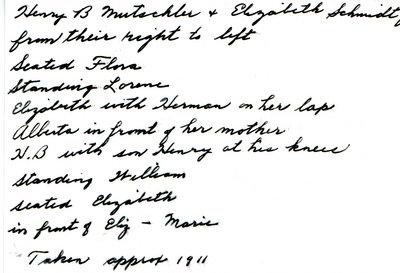 Henry B Mutschler + Elizabeth Schmidt,
from their right to left
Seated Flora
Standing Lorene
Elizabeth with Herman on her lap
Alberta in front of her mother
H.B with son Henry at his knees
Standing William
seated Elizabeth
in front of Eliz - Marie
Taken approx 1911